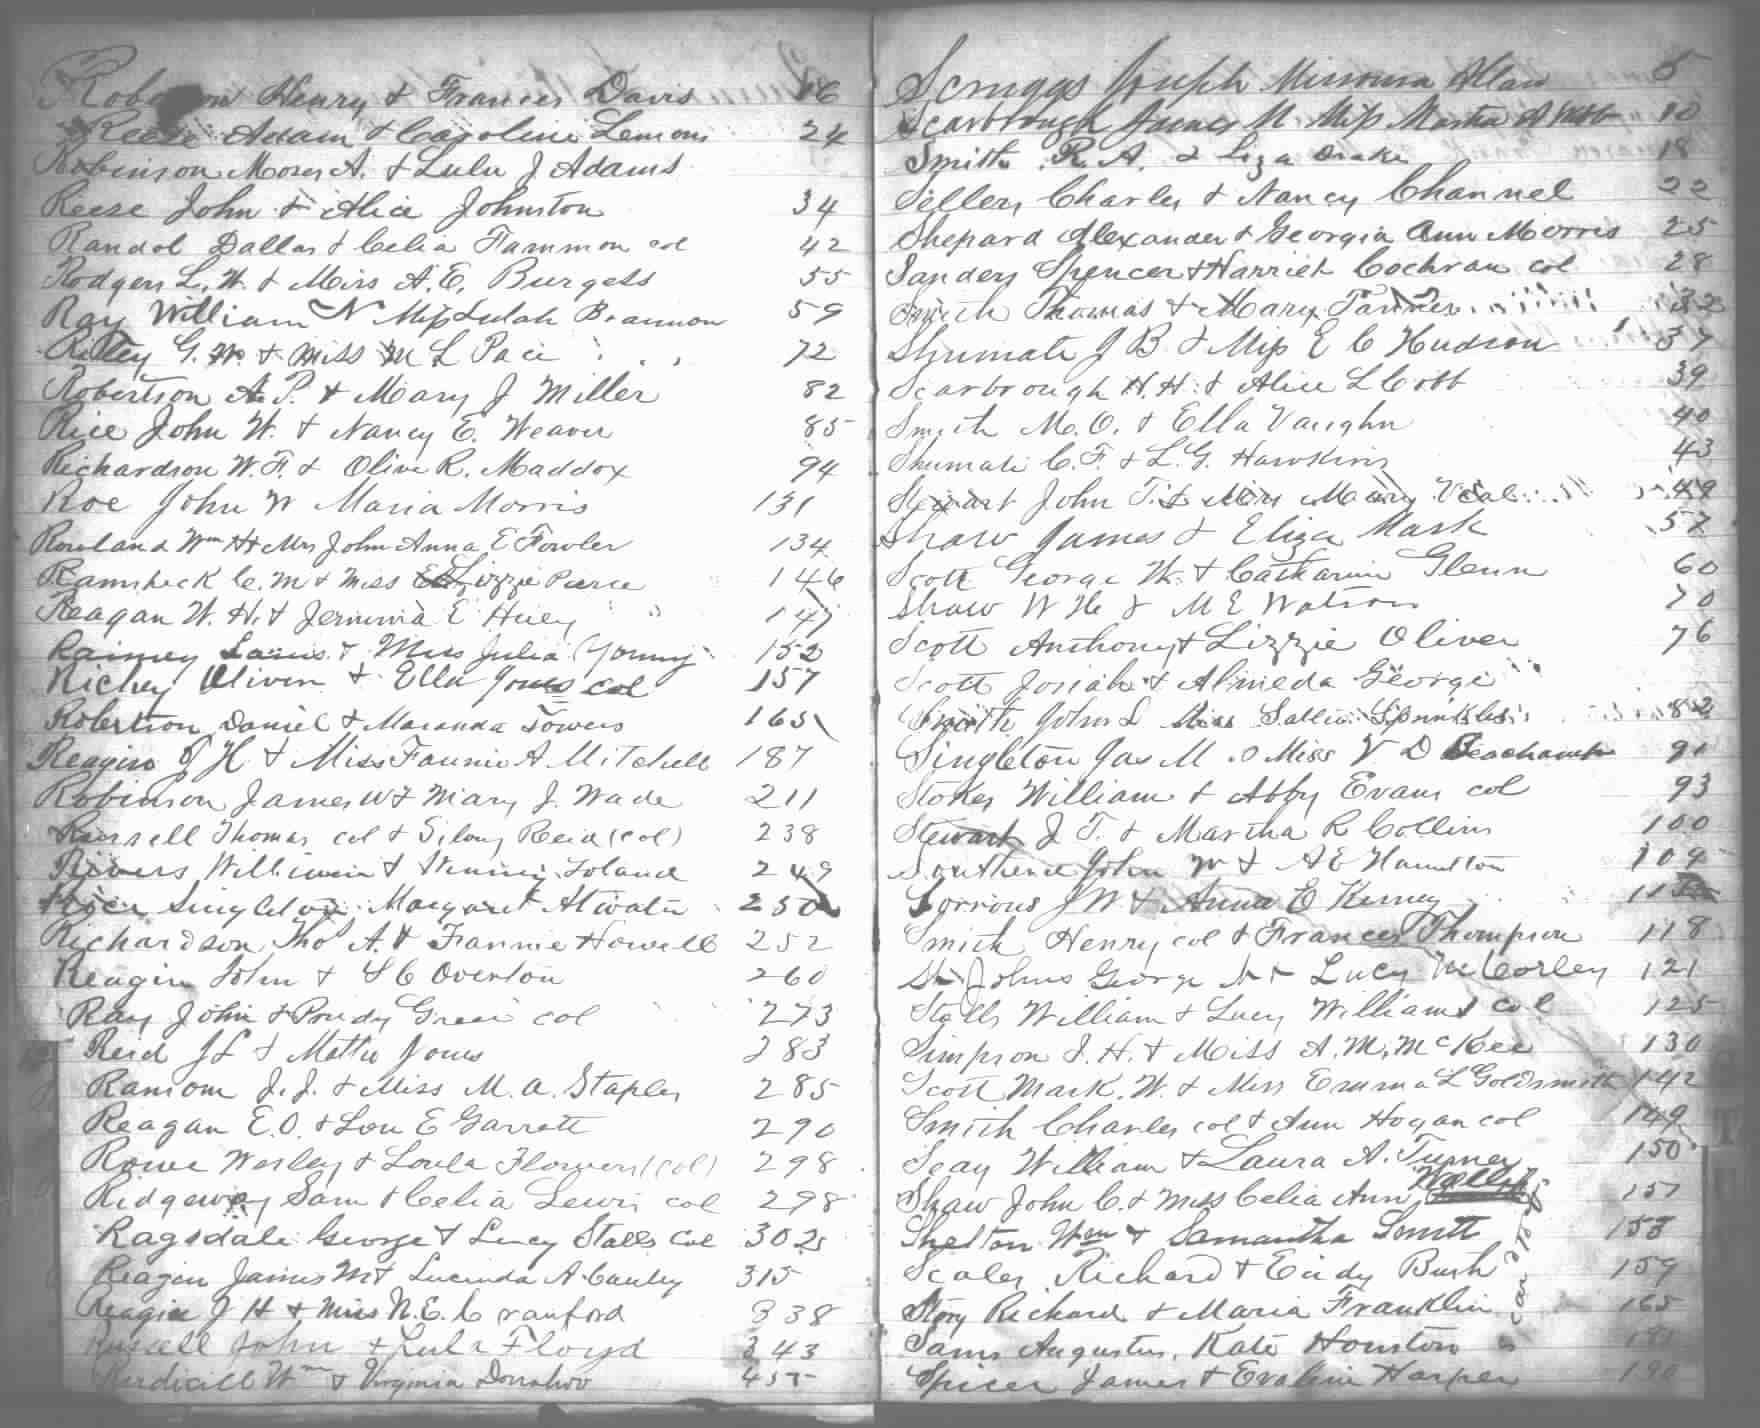 Henry & Frances Davis 16
Reese Adam & Caroline Lemons 24
Robinson Moses A. & Lula J Adams
Reese John & Alice Johnston 34
Randol Dallas & Celia Tammon col 42
Rodgers L. W. & Miss A. E. Burgess 55
Ray William N Miss Lulah Brannon 59
Ripley G. W. & Miss M L Pace 72
Robertson A. P. & Mary J Miller 82
Rice John W. & Nancy E. Weaver 85
Richardson W. F. & Olive R. Maddox 94
Roe John W Maria Morris 131
Rowland Wm H & Mrs John Anna E Fowler 134
C. M & Miss Lizzie Pierce 146
Reagan W. H. & Jemima E Huey 147
Rainey & Miss Julia Young 152
Richey Oliver & Ella Jones col 157
Robertson Daniel & Maranda Towers 165
Reagin J H & Miss Fannie A Mitchell 187
Robinson James W & Mary J. Wade 211
Russell Thomas col & Silvey Reid (col) 238
Rivers William & 249
Singleton Margaret Atwater 250
Richardson Thos A. & Fannie Howell 252
Reagin John & S C Overton 260
Ray John & Prudy Green col 273
Reid J L & Mattie Jones 283
Ransom J. J. & Miss M. A. Staples 285
Reagan E. O. & Lou E Garrett 290
Rowe Wesley & Loula Flowers (col) 298
Ridgeway Sam & Celia Lewis col 298
Ragsdale George & Lucy Stalls Col 302
Reagin James M & Lucinda A. Cauley 315
Reagin J H & Miss N. E. Cranford 338
Russell John & Lula Floyd 343
Wm & Virginia Donahoo
Scruggs Joseph Missouria Allan 5
Scarbrough James M Miss Martha A Webb 10
Smith R. A. & Liza Drake 18
Sellers Charles & Nancy Channel 22
Shepard Alexander & Georgia Ann Morris 25
Sanders Spencer & Harriet Cochran col 28
Smith Thomas & Mary Tanner 32
Shumate J B. & Miss E C Hudson 37
Scarbrough H. H. & Alice L Cobb 39
Smith M. O. & Ella Vaughn 40
Shumate C. F. & L. G. Hawkins 43
Stewart John T. & Miss Mary Veal 49
Shaw James & Eliza Mask 57
Scott George W. & Catharine Glenn 60
Shaw W H & M E Watson 70
Scott Anthony & Lizzie Oliver 76
Scott Josiah & Almeda George
Smith John L Miss Sallie Sprinkles 82
Singleton Jas M & Miss V D Beachamp 91
Stokes William & Abby Evans col 93
Stewart J. T. & Martha R Collins 100
John W & A E Hamilton 109
J W & Anna E Kerney
Smith Henry col & Frances Thompson 118
St Johns George & Lucy McCorley 121
Stalls William & Lucy Williams col 125
Simpson J. H. & Miss A. M. McKee 130
Scott Mark. W. & Miss Emma L Goldsmith 142
Smith Charles col & Ann Hogan col 149
Seay William & Laura A. Turner 150
Shaw John C. & Miss Celia Ann Wallis 151
Shelton Wm & Samantha Smith 153
Scales Richard & Eady Bush 159
Story Richard & Maria Franklin 165
Sams Augustus, Kate Houston
Spicer James & Evaline Harper 190